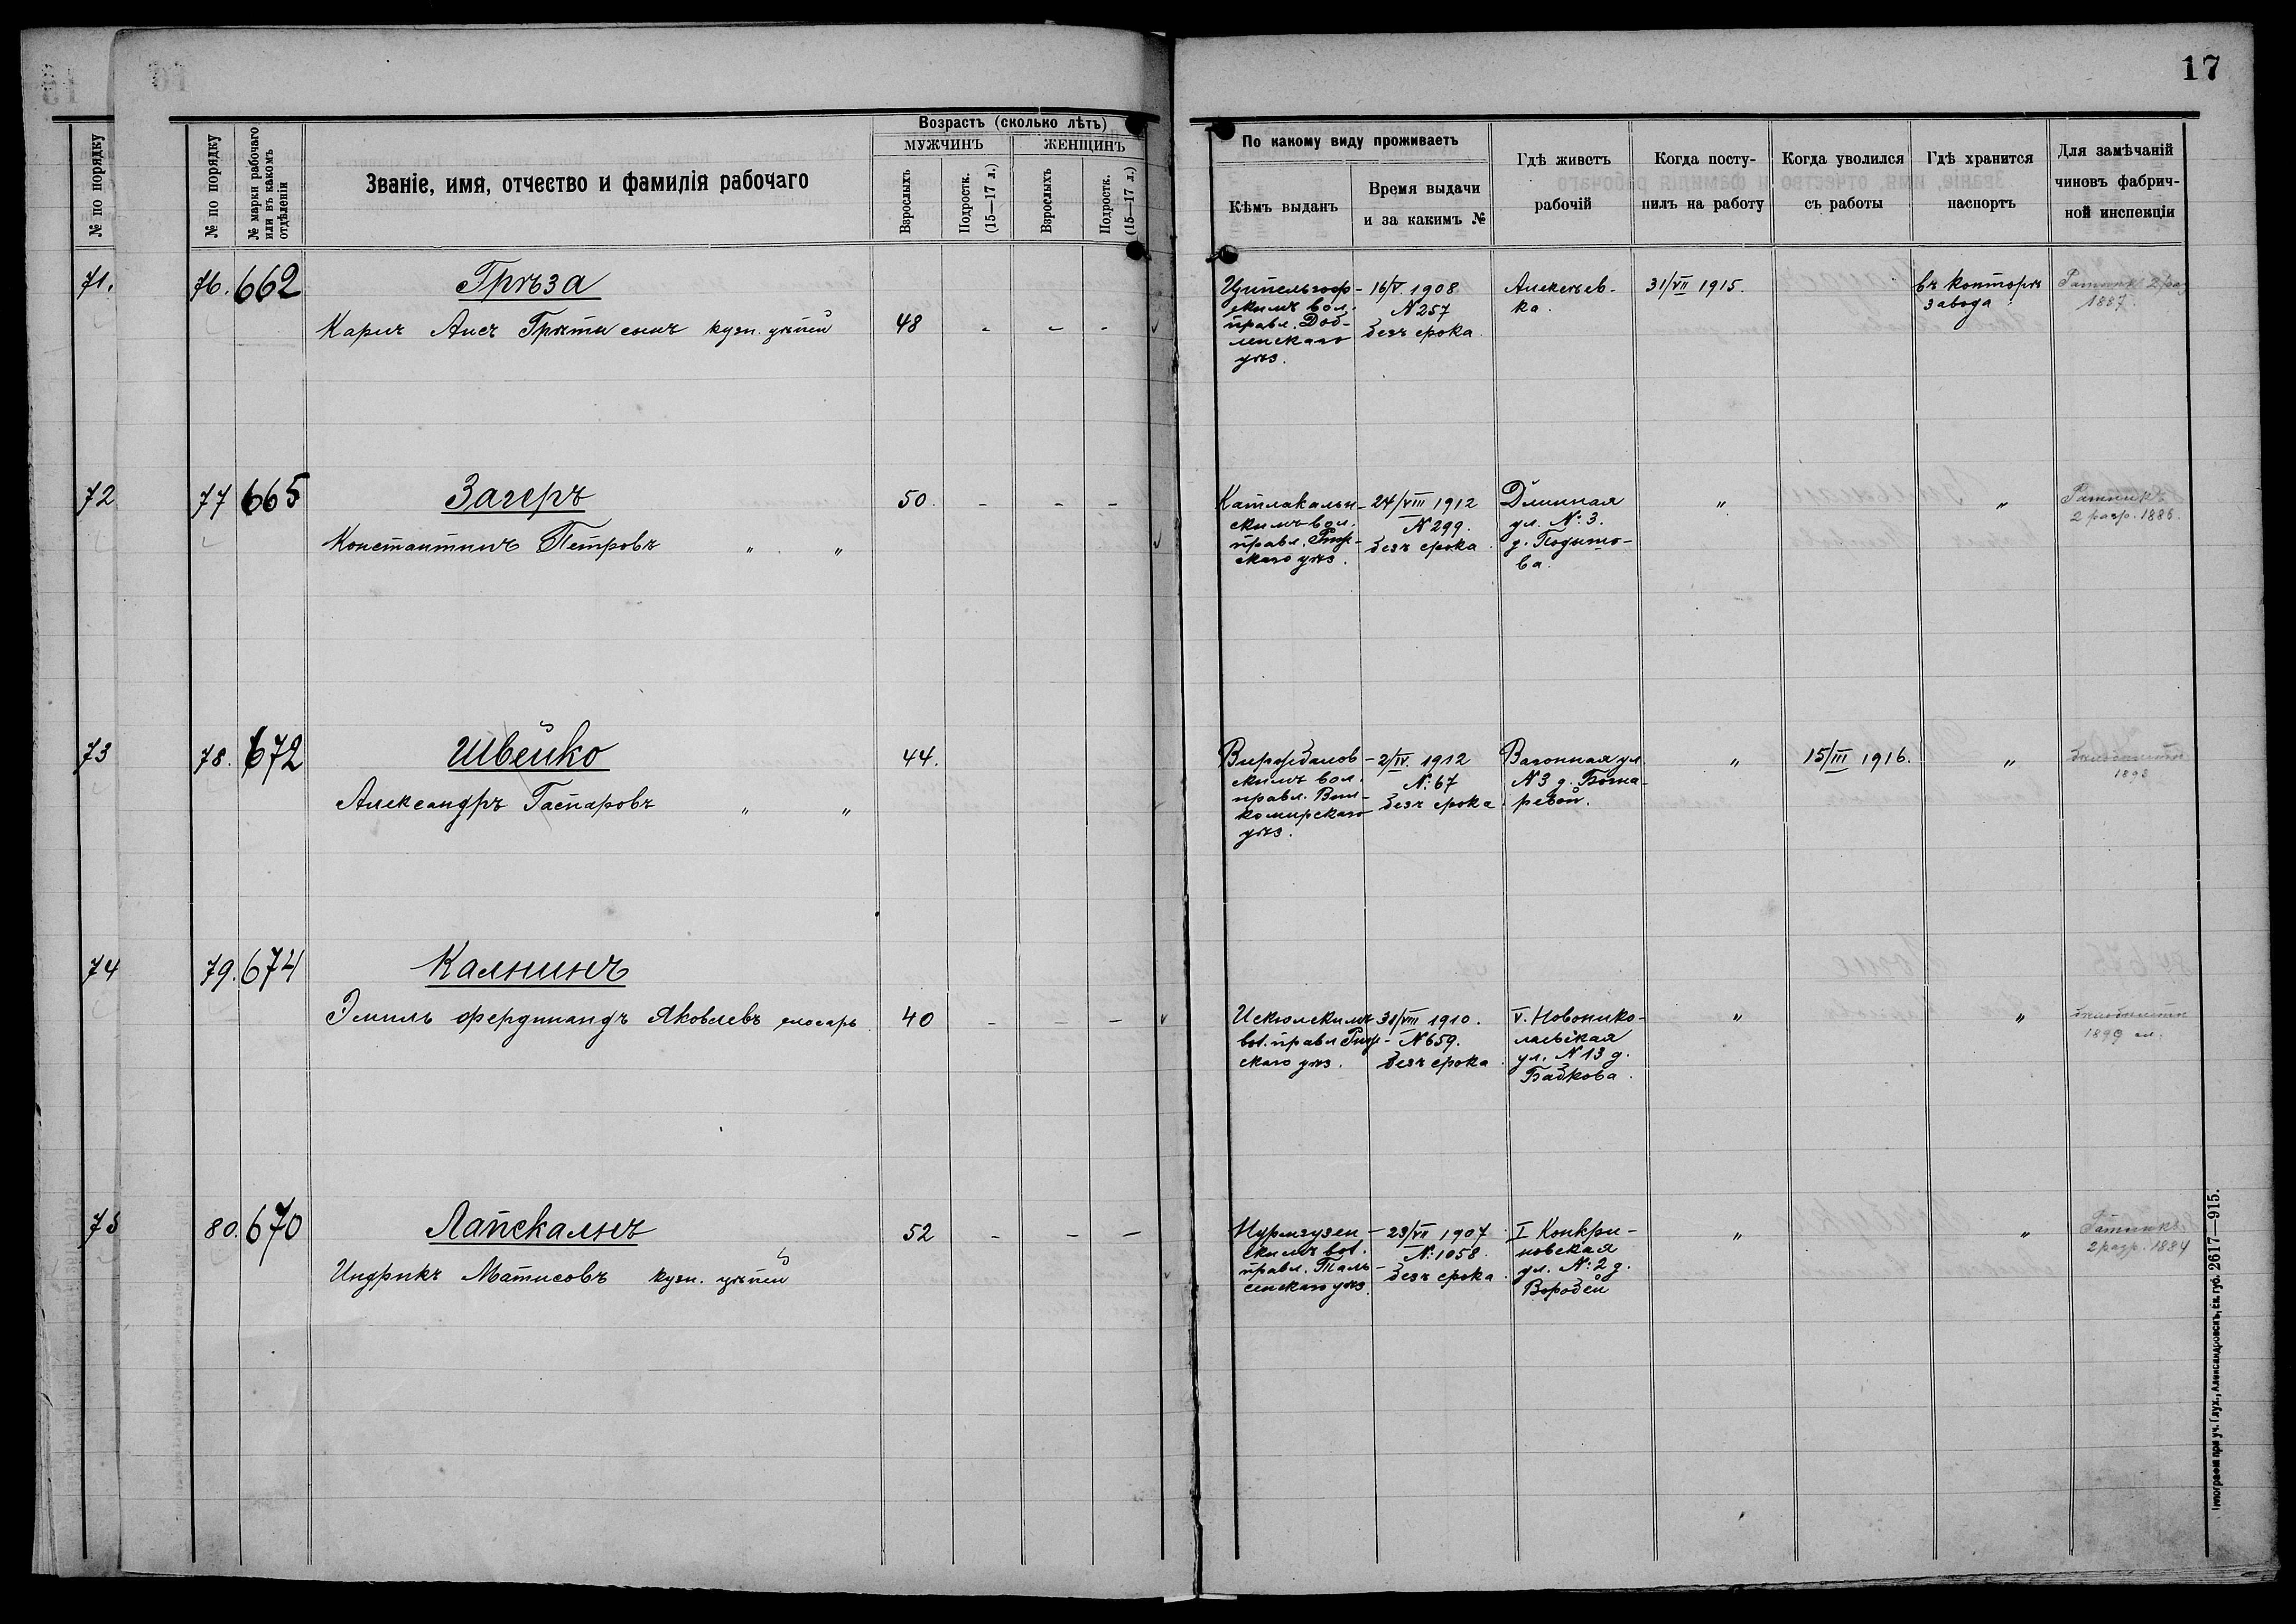 17
Возрастъ (сколько лѣтъ)
№ по порядку
№ по порядку
№ марки рабочаго или въ какомъ отдѣленіи
Званіе, имя, отчество и фамилія рабочаго
МУЖЧИНЪ
ЖЕНЩИНЪ
Взрослыхъ
Подростк. (15—17 л.)
Взрослыхъ
Подростк. (15—17 л.)
По какому виду проживаетъ
Кѣмъ выданъ
Время выдачи
и за какимъ №
Гдѣ живетъ
рабочій
Когда посту-
пилъ на работу
Когда уволился
съ работы
Гдѣ хранится
паспортъ
Для замѣчаній
чиновъ фабрич-
ной инспекціи
71.
76. 662
Грѣза
Карлъ Анс Грѣти сынъ кузн. цѣпей
48 - - -
Ципельгоф-
скимъ вол.
правл. Доб-
ленскаго
уѣз.
16/V. 1908
N 257
безъ срока
Алексѣев-
ка.
31/VII 1915.
въ конторѣ
завода
Ратник 2 раз
1887.
72
77 665
Загеръ
Константинъ Петровъ " "
50. - - -
Катлакальн-
скимъ вол.
правл. Риж-
скаго уѣз.
24/VIII 1912
N 299.
безъ срока.
Длинная
ул. №: 3.
д. Подымо-
ва.
"
"
Ратникъ
2 разр. 1886.
73
78. 672
Швейко
Александръ Гаспаровъ " "
44.
скимъ вол.
правл. Вил-
комирскаго
уѣз.
2/IV. 1912
N: 67
безъ срока
Вагонная ул
N 3 д. Бонда-
ревой.
"
15/III 1916.
"
1893
74
79. 674
Калнинъ
Эмиль Фердинандъ Яковлевъ слесарь
40 - - -
Искюлскимъ
вол. правл Риж-
скаго уѣз.
31/VIII 1910.
N 659.
безъ срока
V. Новонико-
лаевская
ул. N 13 д.
Бабкова.
"
"
1899
75
80. 670
Лапскалнъ
Индрикъ Матисовъ кузн. цѣпей
52 - - -
Нурмгузен-
скимъ вол.
правл. Таль-
сенскаго уѣз.
23/VI 1907
N: 1058.
безъ срока.
I Конкри-
новская
ул. N: 2 д.
Воробей
"
"
Ратникъ
2 разр. 1884
Типографія при уч. Глух., Александровскъ, Ек. губ. 2617—915.